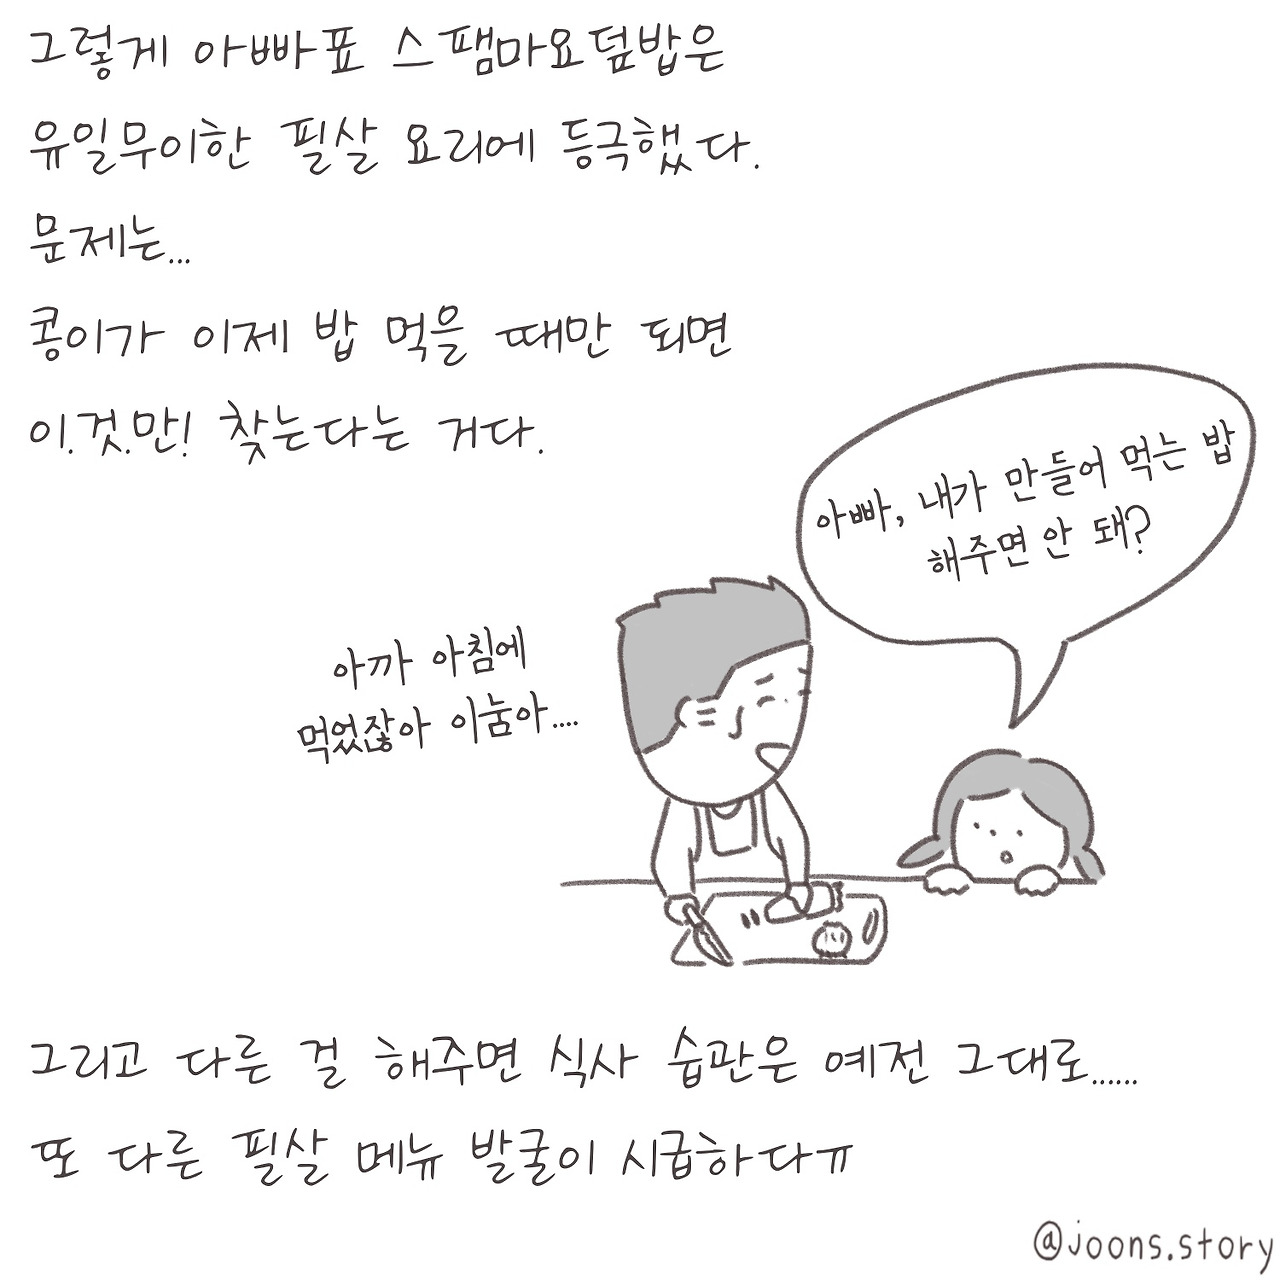 그렇게 아빠표 스팸마요덮밥은
유일무이한 필살 요리에 등극했다.
문제는...
콩이가 이제 밥 먹을 때만 되면
이.것.만! 찾는다는 거다.
아빠, 내가 만들어 먹는 밥
해주면 안 돼?
아까 아침에
먹었잖아 이눔아....
그리고 다른 걸 해주면 식사 습관은 예전 그대로......
또 다른 필살 메뉴 발굴이 시급하다ㅠ
@joons.story